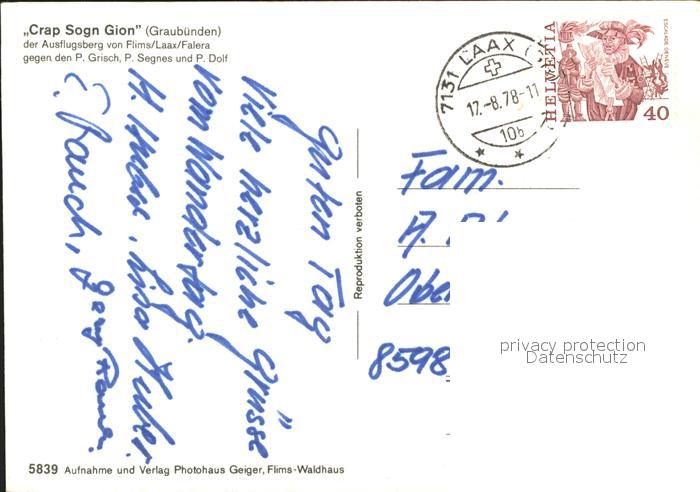 „Crap Sogn Gion” (Graubünden)
der Ausflugsberg von Flims/Laax/Falera
gegen den P. Grisch, P. Segnes und P. Dolf
7131 LAAX
17.-8.78-11
10b
HELVETIA
ESCALADE GENÈVE
40
Guten Tag
Viele herzliche Grüsse
vom Wandertag.
H. Huber, Lisa Huber
E. Rauch,
Reproduktion verboten
Fam.
A.
Ober
8598
privacy protection
Datenschutz
5839 Aufnahme und Verlag Photohaus Geiger, Flims-Waldhaus